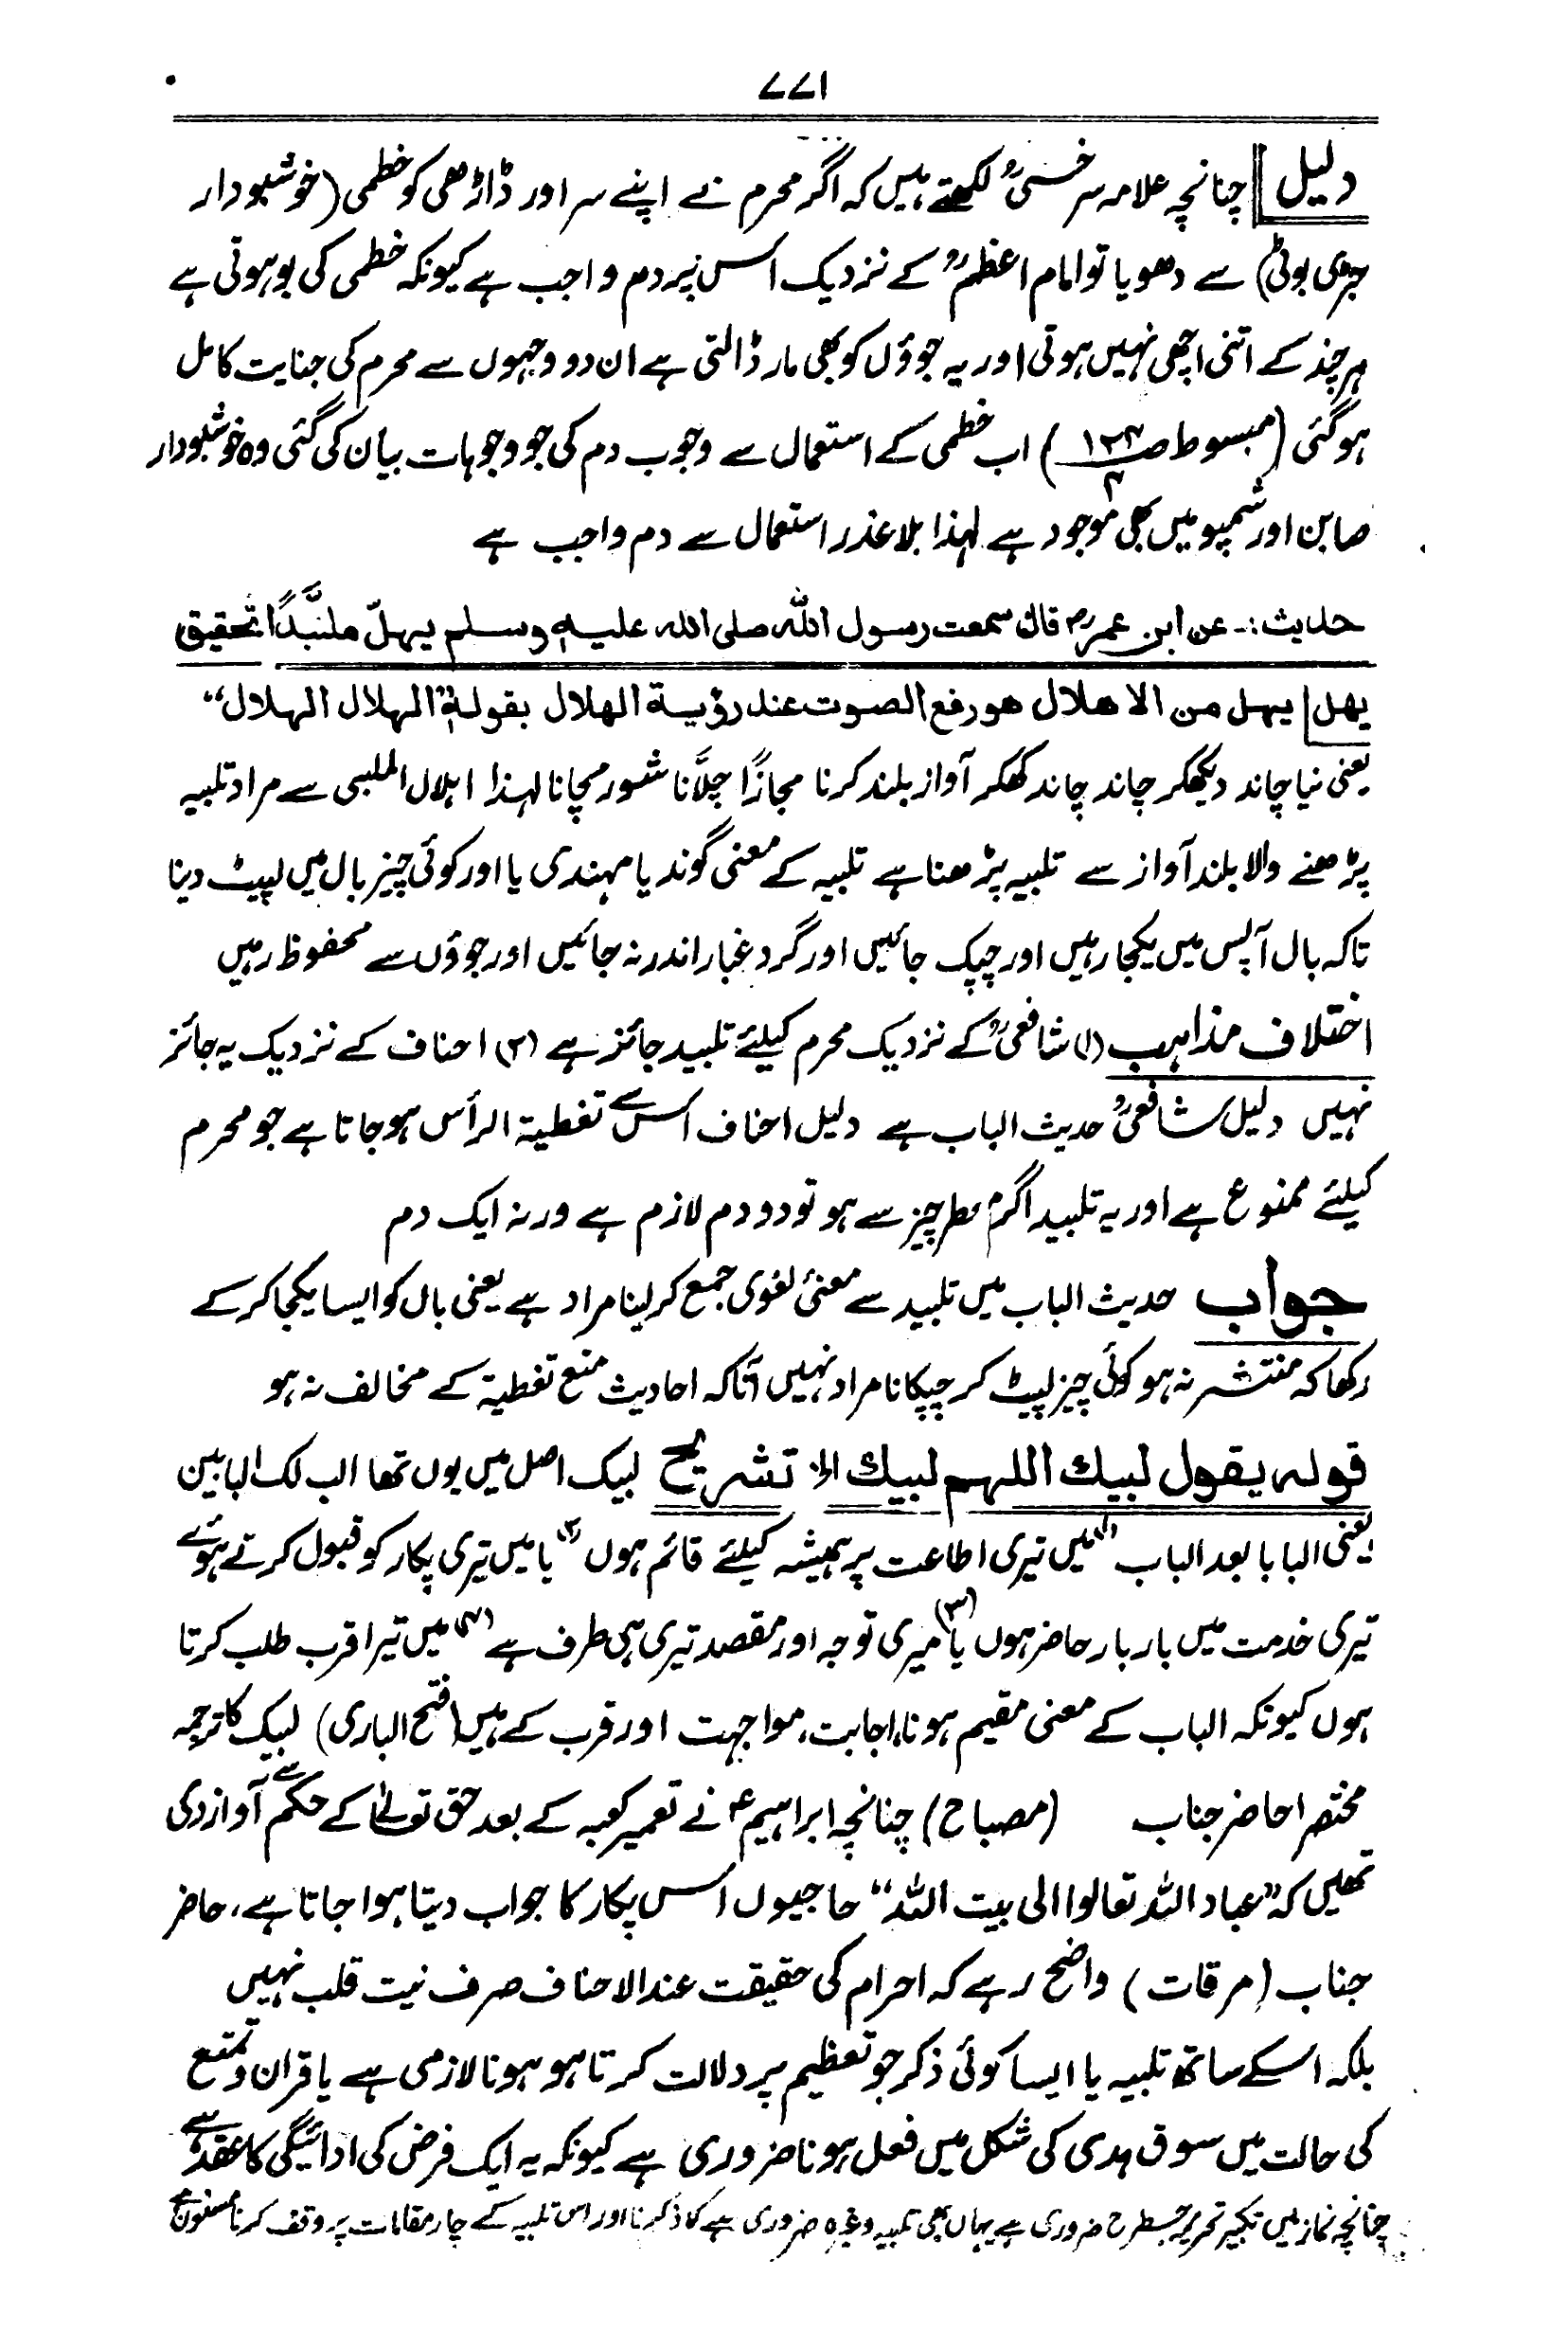 ۷۷۱
دلیل چنانچہ علامہ سرخسیؒ لکھتے ہیں کہ اگر محرم نے اپنے سر اور ڈاڑھی کو خطمی (خوشبودار
جڑی بوٹی) سے دھویا تو امام اعظمؒ کے نزدیک اس پر دم واجب ہے کیونکہ خطمی کی بو ہوتی ہے
ہر چند کے اتنی اچھی نہیں ہوتی اور یہ جوؤں کو بھی مار ڈالتی ہے ان دو وجہوں سے محرم کی جنایت کامل
ہوگئی (مبسوط ص ۱۲۴/۴) اب خطمی کے استعمال سے وجوب دم کی جو وجوہات بیان کی گئی وہ خوشبودار
صابن اور شمپو میں بھی موجود ہے لہذا بلا عذر استعمال سے دم واجب ہے
حدیث:۔ عن ابن عمرؓ قال سمعت رسول اللہ صلی اللہ علیہ وسلم یہلّ ملبّدًا تحقیق
یھل یہل من الاھلال ھو رفع الصوت عند رؤیۃ الھلال بقولہ "الہلال الہلال"
یعنی نیا چاند دیکھکر چاند چاند کھکر آواز بلند کرنا مجازًا چلّانا شور مچانا لہذا اہلال الملبی سے مراد تلبیہ
پڑھنے والا بلند آواز سے تلبیہ پڑھنا ہے تلبیہ کے معنی گوند یا مہندی یا اور کوئی چیز بال میں لپیٹ دینا
تاکہ بال آپس میں یکجا رہیں اور چپک جائیں اور گرد غبار اندر نہ جائیں اور جوؤں سے محفوظ رہیں
اختلاف مذاہب (۱) شافعیؒ کے نزدیک محرم کیلئے تلبید جائز ہے (۲) احناف کے نزدیک یہ جائز
نہیں دلیل شافعیؒ حدیث الباب ہے دلیل احناف اس سے تغطیۃ الرأس ہوجاتا ہے جو محرم
کیلئے ممنوع ہے اور یہ تلبید اگر معطر چیز سے ہو تو دو دم لازم ہے ورنہ ایک دم
جواب حدیث الباب میں تلبید سے معنیٔ لغوی جمع کرلینا مراد ہے یعنی بال کو ایسا یکجا کرکے
رکھا کہ منتشر نہ ہو کوئی چیز لپیٹ کر چپکانا مراد نہیں تاکہ احادیث منع تغطیۃ کے مخالف نہ ہو
قولہ یقول لبیک اللہم لبیک الخ تشریح لبیک اصل میں یوں تھا الب لک البابین
یعنی البابا بعد الباب (۱) میں تیری اطاعت پر ہمیشہ کیلئے قائم ہوں (۲) یا میں تیری پکار کو قبول کرتے ہوئے
تیری خدمت میں بار بار حاضر ہوں یا (۳) میری توجہ اور مقصد تیری ہی طرف ہے (۴) میں تیرا قرب طلب کرتا
ہوں کیونکہ الباب کے معنی مقیم ہونا، اجابت، مواجہت اور قرب کے ہیں (فتح الباری) لبیک کا ترجمہ
مختصرا حاضر جناب (مصباح) چنانچہ ابراہیمؑ نے تعمیر کعبہ کے بعد حق تعالیٰ کے حکم سے آواز دی
تھیں کہ "عباد اللہ تعالوا الی بیت اللہ" حاجیوں اس پکار کا جواب دیتا ہوا جاتا ہے، حاضر
جناب (مرقات) واضح رہے کہ احرام کی حقیقت عند الاحناف صرف نیت قلب نہیں
بلکہ اسکے ساتھ تلبیہ یا ایسا کوئی ذکر جو تعظیم پر دلالت کرتا ہو ہونا لازمی ہے یا قران و تمتع
کی حالت میں سوق ہدی کی شکل میں فعل ہونا ضروری ہے کیونکہ یہ ایک فرض کی ادائیگی کا عقد ہے
چنانچہ نماز میں تکبیر تحریمہ جسطرح ضروری ہے یہاں بھی تلبیہ وغیرہ ضروری ہے کا ذکر نا اور اس تلبیہ کے چار مقامات پر وقف کرنا مسنون ہے